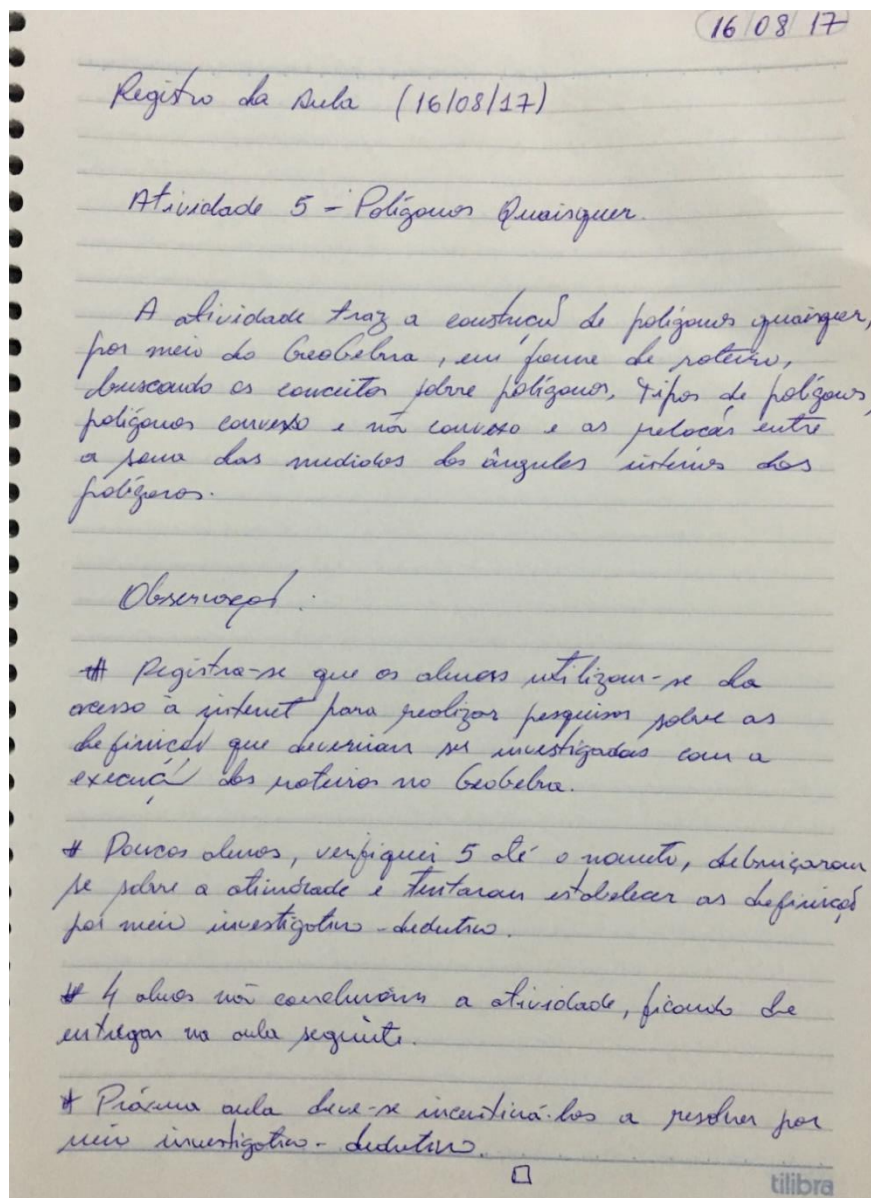 16/08/17
Registro da Aula (16/08/17)
Atividade 5 - Polígonos Quaisquer.
A atividade traz a construção de polígonos quaisquer,
por meio do GeoGebra, em forma de roteiro,
buscando os conceitos sobre polígonos, tipos de polígonos,
polígonos convexo e não convexo e as relações entre
a soma das medidas dos ângulos internos dos
polígonos.
Observação:
# Registra-se que os alunos utilizam-se da
acesso à internet para realizar pesquisas sobre as
definições que deveriam ser investigadas com a
execução dos roteiros no GeoGebra.
# Poucos alunos, verifiquei 5 até o momento, debruçaram
se sobre a atividade e tentaram estabelecer as definições
por meio investigativo-dedutivo.
# 4 alunos não concluíram a atividade, ficando de
entregar na aula seguinte.
# Próxima aula deve-se incentivá-los a resolver por
meio investigativo-dedutivo.
tilibra